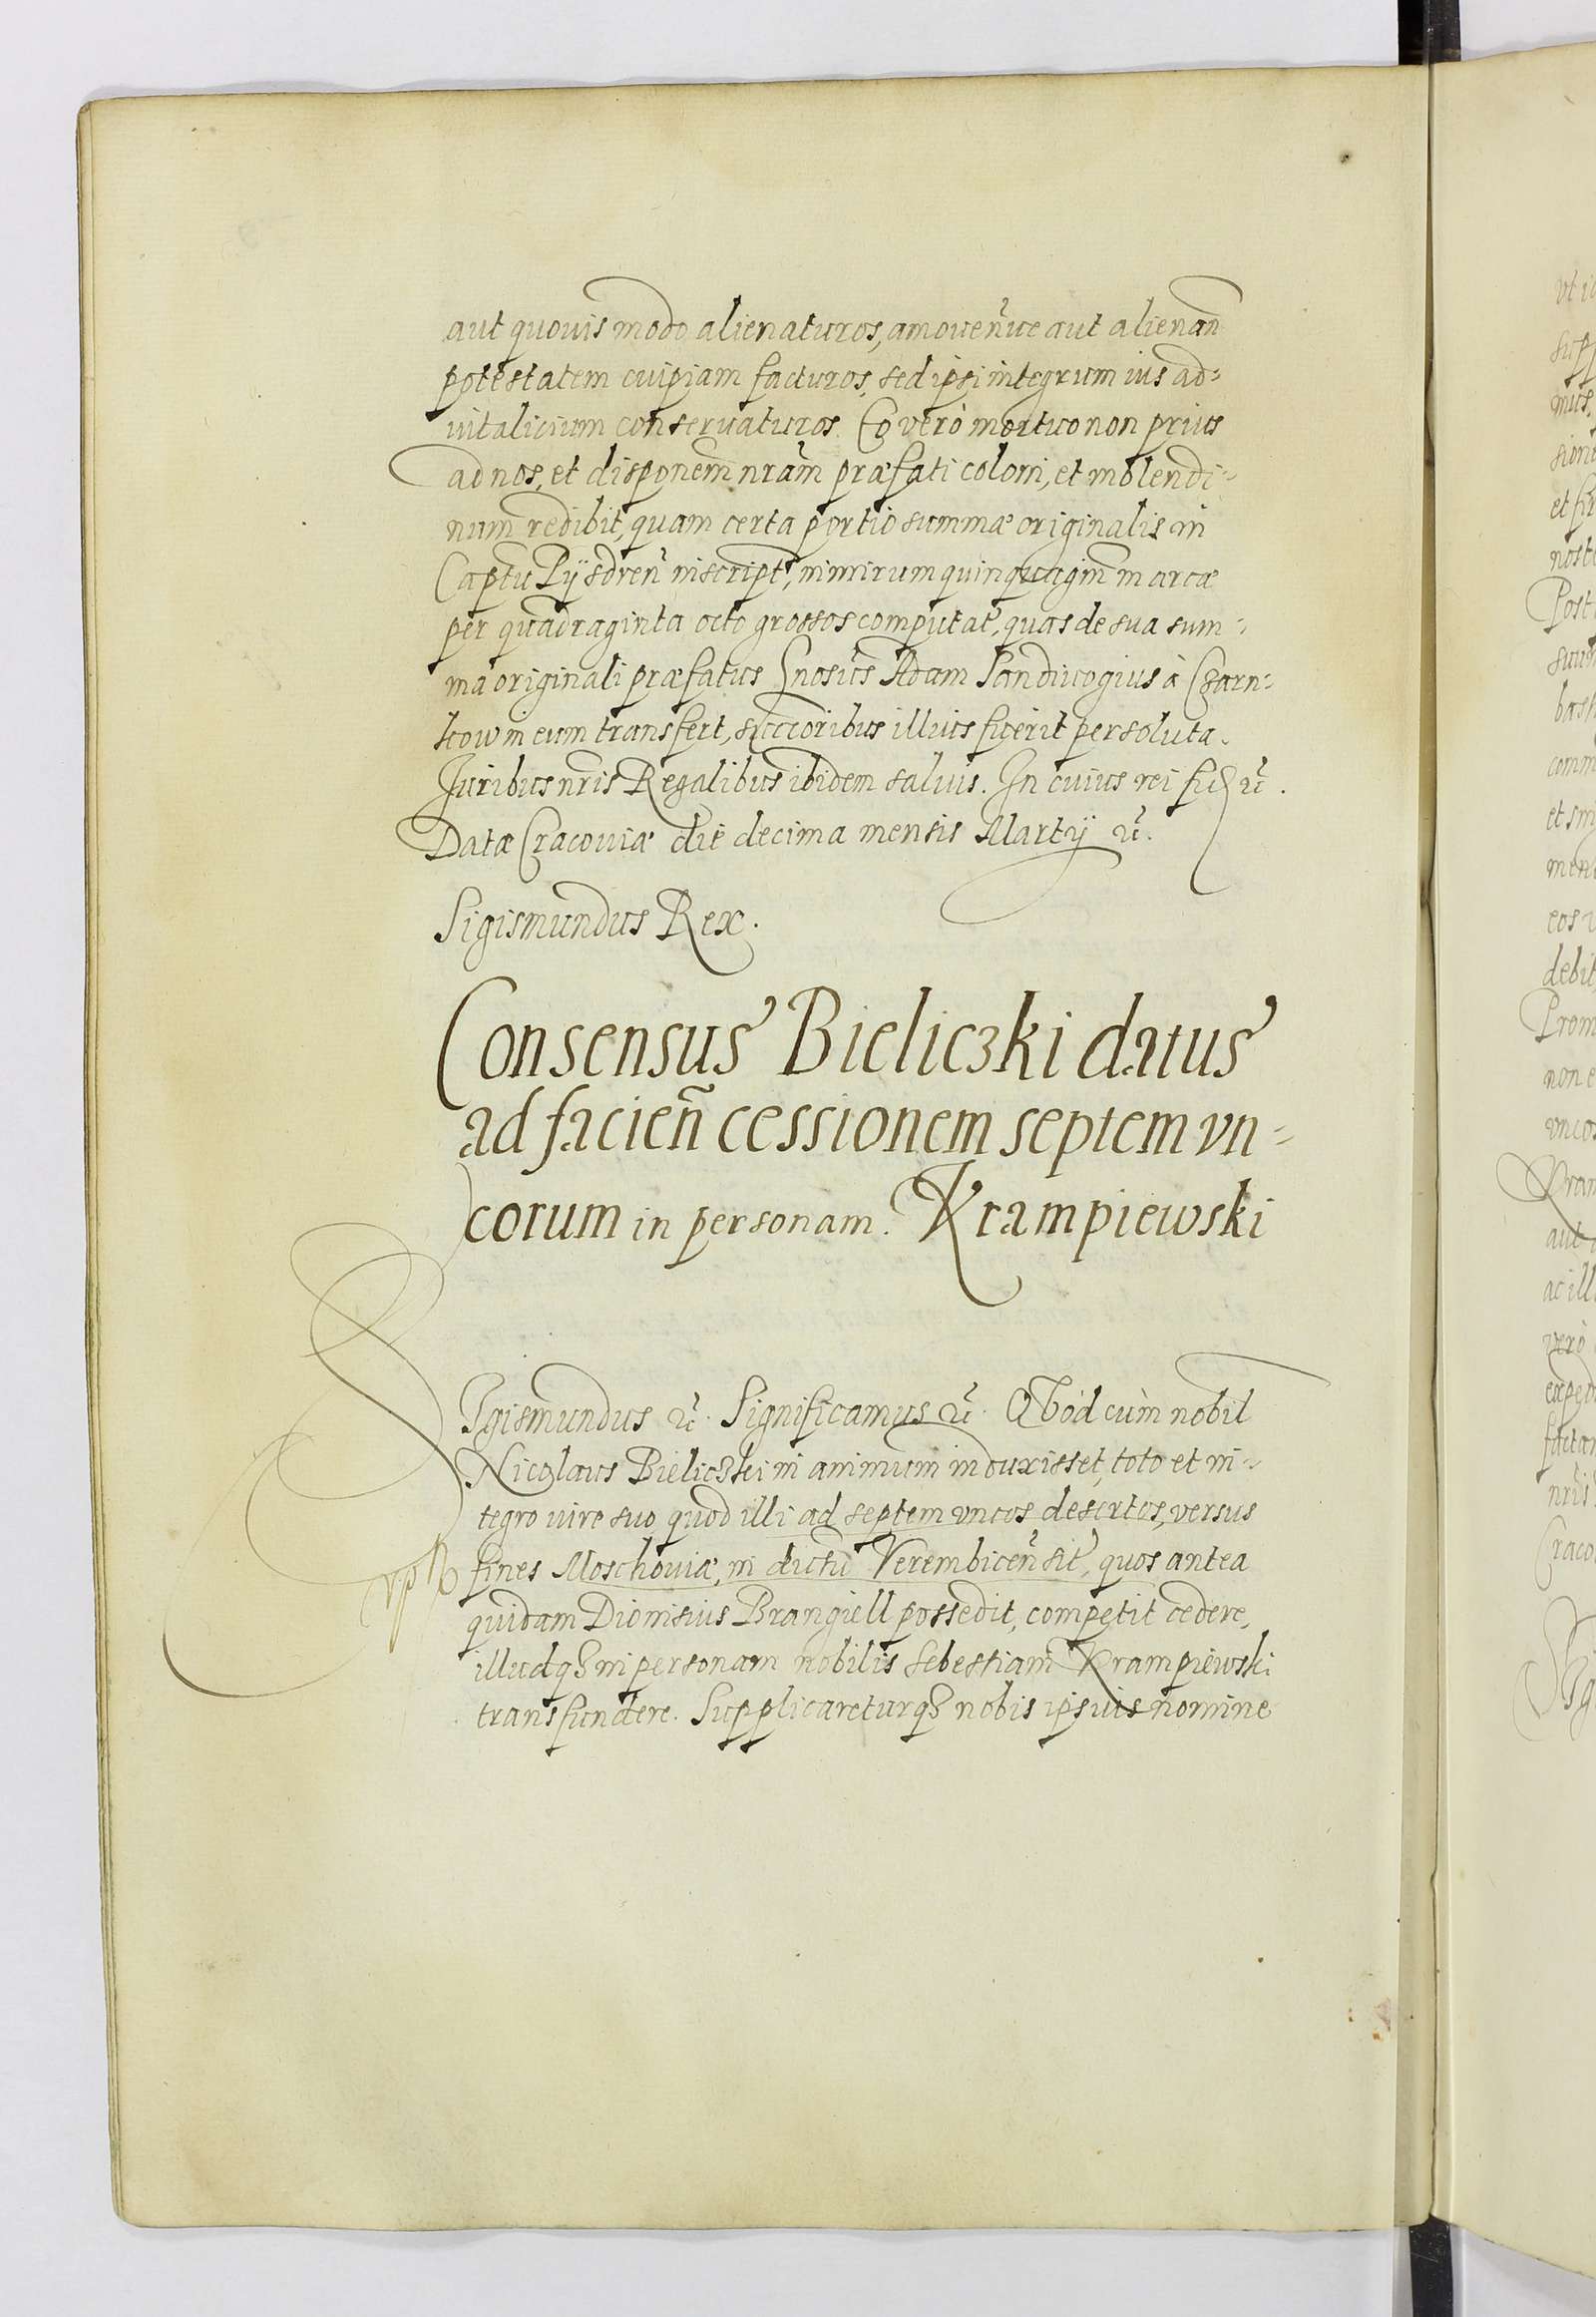 aut quouis modo alienaturos, amoueñue aut alienañ
potestatem cuipiam facturos, sed ipsi integrum ius ad=
uitalicium conseruaturos. Eo verò mortuo non prius
ad nos, et disponem̃ nr̃am præfati coloni, et molendi=
num redibit, quam certa portio summæ originalis in
Captũ Pÿsdreñ inscript̃, nimirum quinquagint̃ marcæ
per quadraginta octo grossos computat̃, quas de sua sum=
ma originali præfatus Gnosus Adam Sandiuogius à Czarn=
kow in eum transfert, succeoribus illius fuerit persoluta.
Juribus nr̃is Regalibus ibidem saluis. In cuius rei fid̃ &c̃.
Datæ Cracouiæ die decima mensis Martÿ &c̃.
Sigismundus Rex.
Consensus Bieliczki datus
ad facieñ cessionem septem vn=
corum in personam. Krampiewski
SIgismundus &c̃. Significamus &c̃. Qvòd cùm nobil
Nicolaus Bieliczki in animum induxisset, toto et in=
tegro iure suo quod illi ad septem vncos desertos, versus
fines Moschouiæ, in dictũ Verembiceñ sit̃, quos antea
quidam Dionisius Brangiell possedit, competit cedere,
illudq3 in personam nobilis Sebestiani Krampiewski
transfundere. Supplicareturq3 nobis ipsius nomine